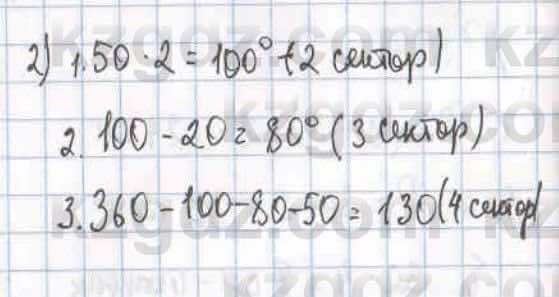 2) 1. 50 · 2 = 100° (2 сектор)
2. 100 - 20 = 80° (3 сектор)
3. 360 - 100 - 80 - 50 = 130 (4 сектор)